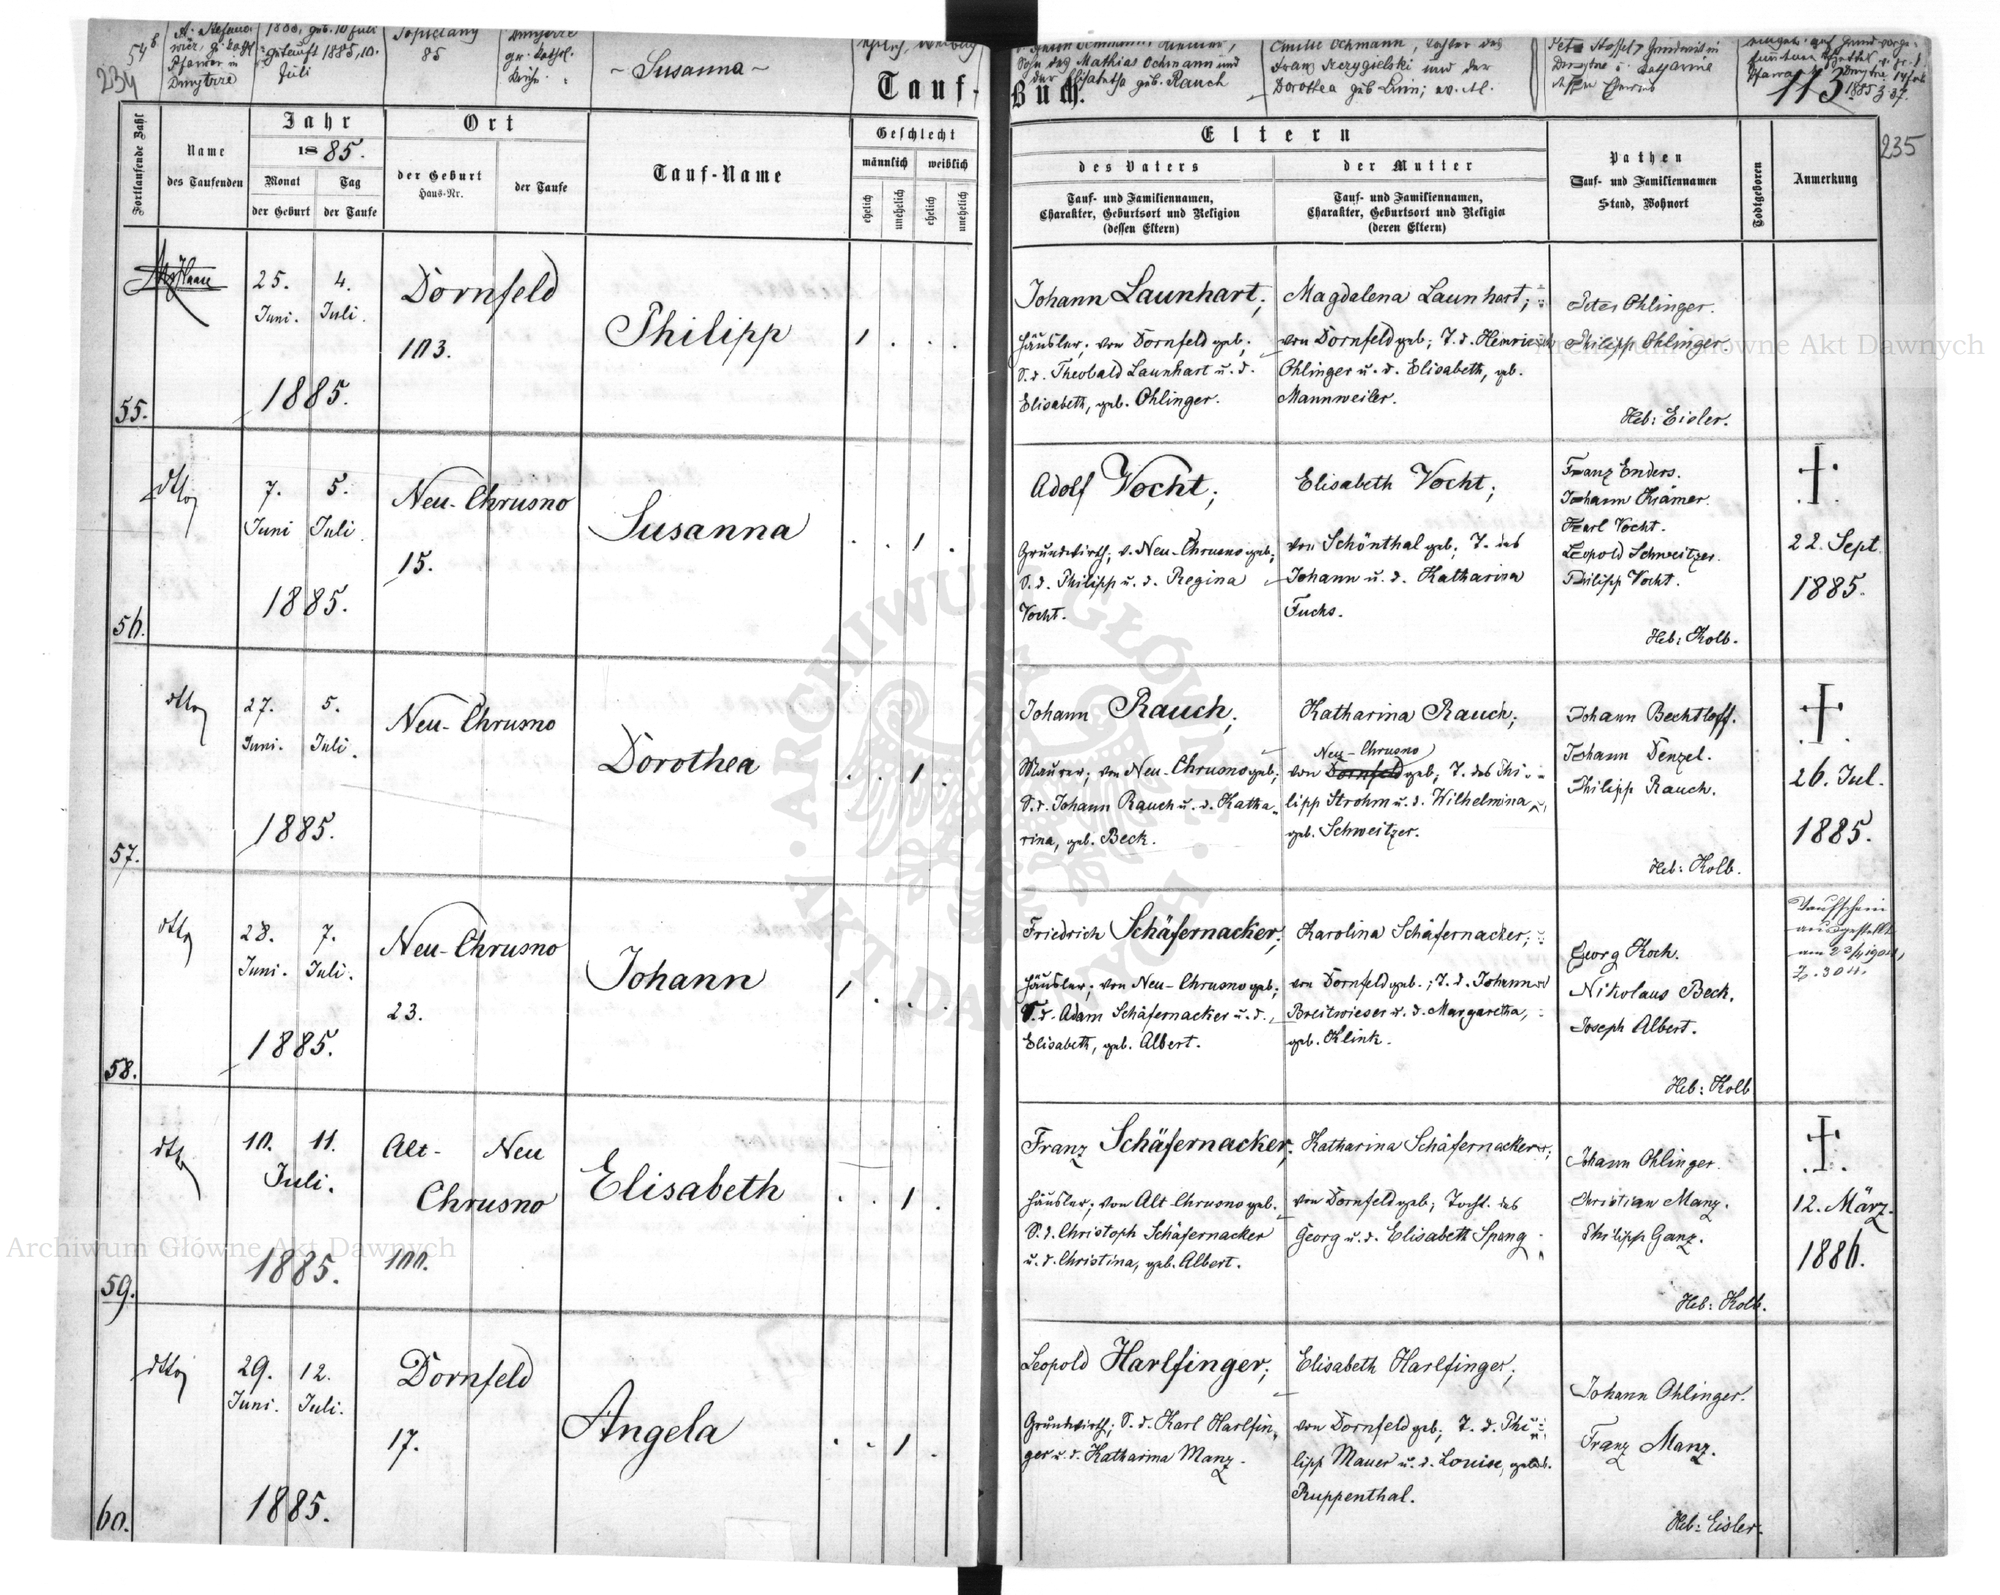 54b
234
Pfarrer in
1885, geb. 10 Juli
getauft 1885, 10.
Juli
85
gr. kathol.
Kirche
~ Susanna ~
Sohn des Mathias Ochmann und
der Elisabetha geb. Rauch
Emilie Ochmann, Tochter des
und der
Dorothea geb. Linn; ev. A.
113
235
Tauf-Buch.
Fortlaufende Zahl
Name
des Taufenden
Jahr
1885.
Monat
der Geburt
Tag
der Taufe
Ort
der Geburt
Haus-Nr.
der Taufe
Tauf-Name
Geschlecht
männlich
weiblich
ehelich
unehelich
ehelich
unehelich
Eltern
des Vaters
Tauf- und Familiennamen,
Charakter, Geburtsort und Religion
(dessen Eltern)
der Mutter
Tauf- und Familiennamen,
Charakter, Geburtsort und Religion
(deren Eltern)
Pathen
Tauf- und Familiennamen
Stand, Wohnort
Todtgeboren
Anmerkung
55.
25.
Juni.
4.
Juli.
1885.
Dornfeld
103.
Philipp
1 . . .
Johann Launhart;
Häusler; von Dornfeld geb;
S. d. Theobald Launhart u. d.
Elisabeth, geb. Ohlinger.
Magdalena Launhart;
von Dornfeld geb; T. d. Heinrich
Ohlinger u. d. Elisabeth, geb.
Mannweiler.
Peter Ohlinger.
Philipp Ohlinger.
Heb: Eisler.
56.
dtto
7.
Juni
5.
Juli
1885.
Neu-Chrusno
15.
Susanna
. . 1 .
Adolf Vocht;
Grundwirth; v. Neu-Chrusno geb;
S. d. Philipp u. d. Regina
Vocht.
Elisabeth Vocht;
von Schönthal geb; T. des
Johann u. d. Katharina
Fuchs.
Franz Enders.
Johann Krämer.
Karl Vocht.
Leopold Schweitzer.
Philipp Vocht.
Heb: Kolb.
22. Sept
1885.
57.
dtto
27.
Juni.
5.
Juli.
1885.
Neu-Chrusno
Dorothea
. . 1 .
Johann Rauch;
Maurer; von Neu-Chrusno geb;
S. d. Johann Rauch u. d. Katha-
rina, geb. Beck.
Katharina Rauch;
Neu-Chrusno
von Dornfeld geb; T. des Phi-
lipp Strohm u. d. Wilhelmina,
geb. Schweitzer.
Johann Bechtloff.
Johann Denzel.
Philipp Rauch.
Heb: Kolb.
26. Jul.
1885.
58.
dtto
28.
Juni.
7.
Juli.
1885.
Neu-Chrusno
23.
Johann
1 . . .
Friedrich Schäfernacker;
Häusler; von Neu-Chrusno geb;
S. d. Adam Schäfernacker u. d.
Elisabeth, geb. Albert.
Karolina Schäfernacker;
von Dornfeld geb.; T. d. Johann
Breitwieser u. d. Margaretha,
geb. Klink.
Georg Koch.
Nikolaus Beck.
Joseph Albert.
Heb: Kolb
Taufschein
ausgestellt
59.
dtto
10. 11.
Juli.
1885.
Alt- Neu
Chrusno
100.
Elisabeth
. . 1 .
Franz Schäfernacker;
Häusler; von Alt Chrusno geb.
S. d. Christoph Schäfernacker
u. d. Christina, geb. Albert.
Katharina Schäfernacker;
von Dornfeld geb; Tocht. des
Georg u. d. Elisabeth Spang
Johann Ohlinger.
Christian Manz.
Philipp Ganz.
Heb: Kolb.
12. März.
1886.
60.
dtto
29.
Juni.
12.
Juli.
1885.
Dornfeld
17.
Angela
. . 1 .
Leopold Harlfinger;
Grundwirth; S. d. Karl Harlfin-
ger u. d. Katharina Manz.
Elisabeth Harlfinger;
von Dornfeld geb; T. d. Phi-
lipp Mauer u. d. Louise, geb.
Ruppenthal.
Johann Ohlinger.
Franz Manz.
Heb: Eisler.
Archiwum Główne Akt Dawnych
Archiwum Główne Akt Dawnych
ARCHIWUM GŁÓWNE AKT DAWNYCH